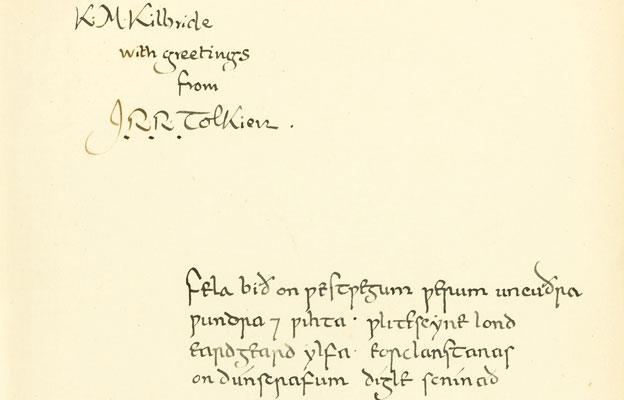 K.M. Kilbride
with greetings
from
J.R.R. Tolkien.
Fela bið on ƿestƿegum ƿerum uncúðra
ƿundra ⁊ ƿihta · ƿlitescýne lond
eardgeard ylfa · eorclanstanas
on dúnscrafum digle scínað